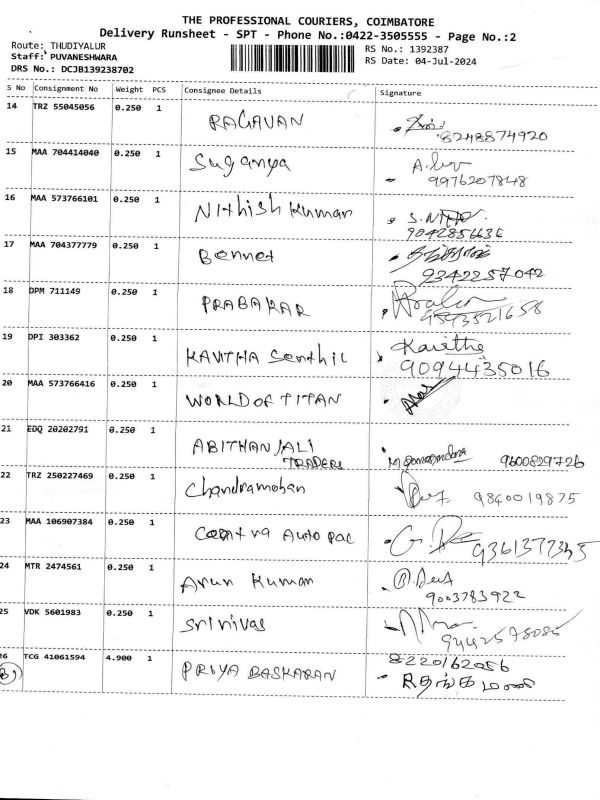 THE PROFESSIONAL COURIERS, COIMBATORE
Delivery Runsheet - SPT - Phone No.:0422-3505555 - Page No.:2
Route: THUDIYALUR
RS No.: 1392387
Staff: PUVANESHWARA
RS Date: 04-Jul-2024
DRS No.: DCJB139238702
S No Consignment No Weight PCS Consignee Details Signature
14 TRZ 55045056 0.250 1 RAGAVAN
8248874920
15 MAA 704414040 0.250 1 Suganya
9976207848
16 MAA 573766101 0.250 1 Nithish Kumar
17 MAA 704377779 0.250 1 Bennet
9342257042
18 DPM 711149 0.250 1 PRABAKAR
9543521658
19 DPI 303362 0.250 1 KAVITHA Senthil Kavitha
9094435016
20 MAA 573766416 0.250 1 WORLD OF TITAN
21 EDQ 20202791 0.250 1 ABITHANJALI
TRADERS 9600829726
22 TRZ 250227469 0.250 1 Chandramohan 9840019875
23 MAA 106907384 0.250 1 Auto Pac 9361377345
24 MTR 2474561 0.250 1 Arun Kumar
9003783922
25 VDK 5601983 0.250 1 Srinivas
9442578085
26 TCG 41061594 4.900 1 PRIYA BASKARAN 8220162056
R தங்கமணி